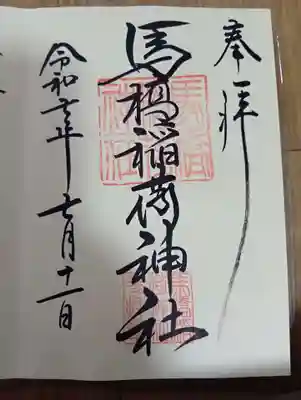 奉拝
馬橋稲荷神社
令和六年七月十一日